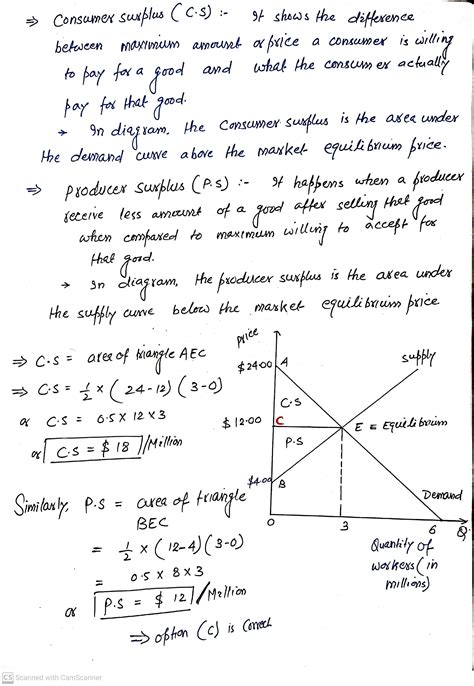 ⇒ Consumer surplus (C.S) :- It shows the difference
between maximum amount or price a consumer is willing
to pay for a good and what the consumer actually
pay for that good.
→ In diagram, the Consumer surplus is the area under
the demand curve above the market equilibrium price.
⇒ Producer Surplus (P.S) :- It happens when a producer
receive less amount of a good after selling that good
when compared to maximum willing to accept for
that good.
→ In diagram, the producer surplus is the area under
the supply curve below the market equilibrium price
⇒ C.S = area of triangle AEC
⇒ C.S = 1/2 × (24-12) (3-0)
or C.S = 0.5 × 12 × 3
or C.S = $ 18 /Million
Similarly, P.S = area of triangle
BEC
= 1/2 × (12-4) (3-0)
= 0.5 × 8 × 3
or P.S = $ 12 /Million
⇒ option (C) is Correct
price
$24.00 A
supply
C.S
$12.00 C
E = Equilibrium
P.S
$4.00 B
Demand
0 3 6 Q
Quantity of
workers (in
millions)
CS Scanned with CamScanner